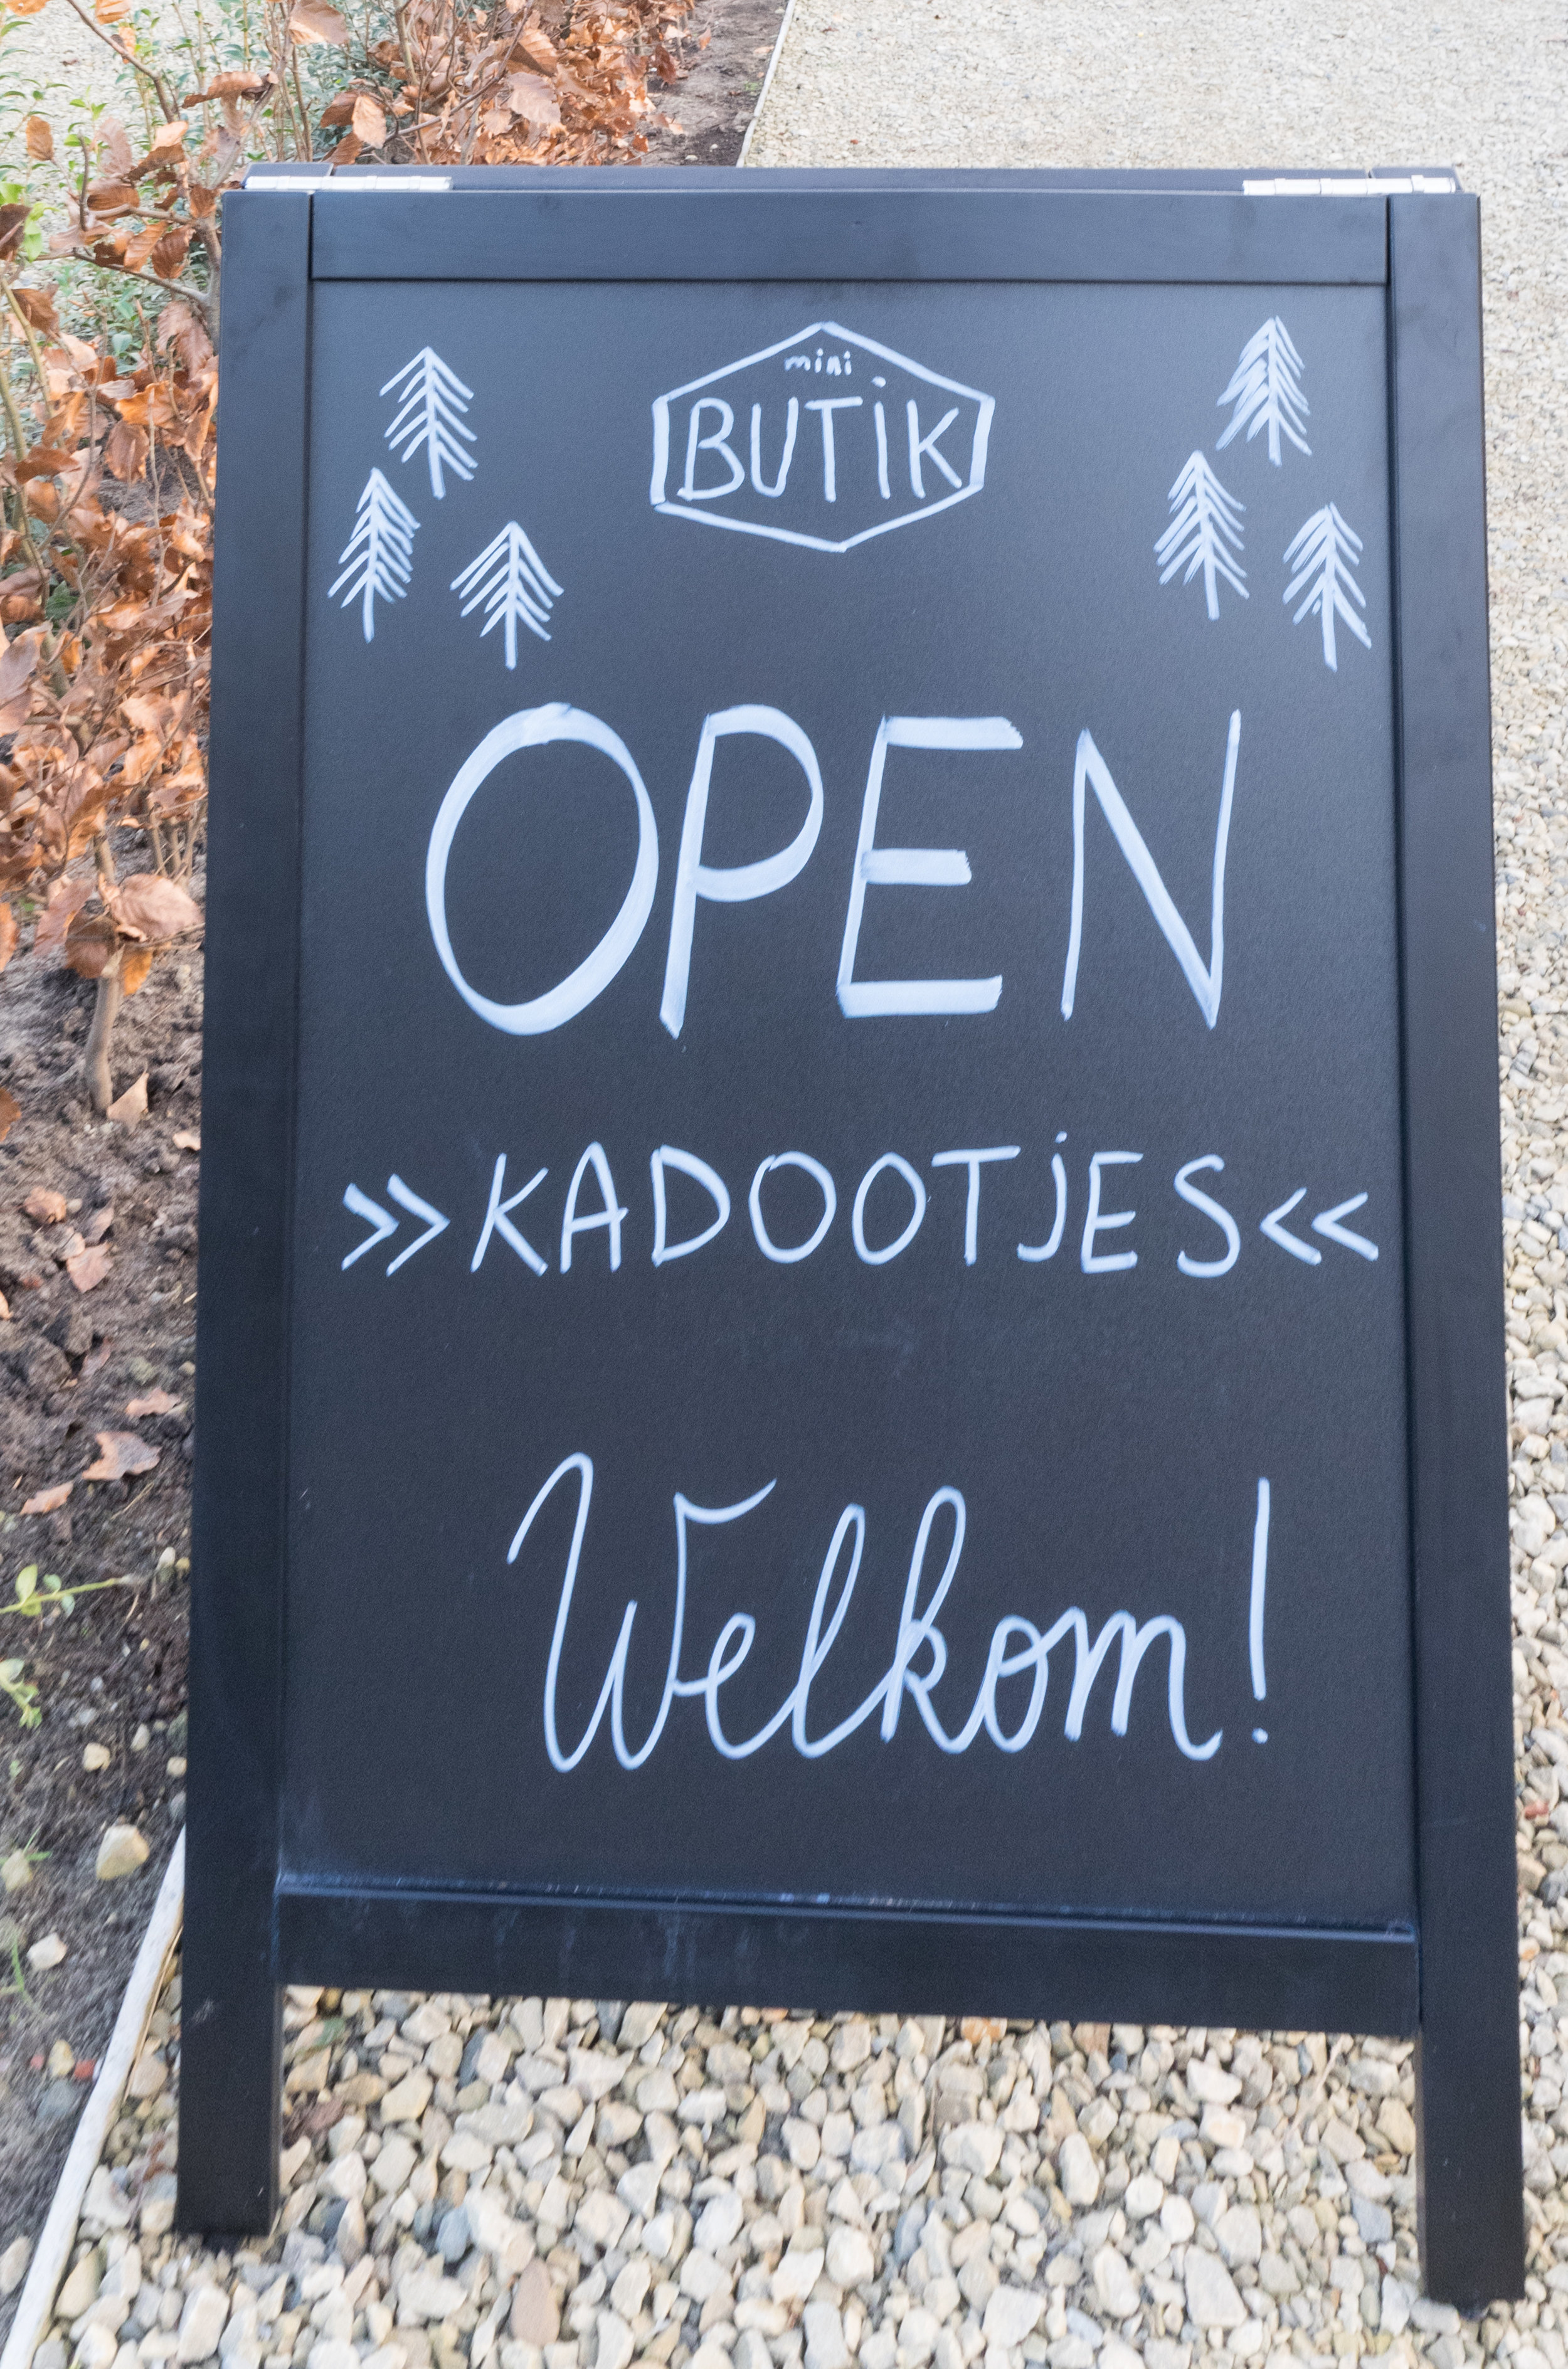 mini
BUTiK
OPEN
>> KADOOTjES <<
Welkom!